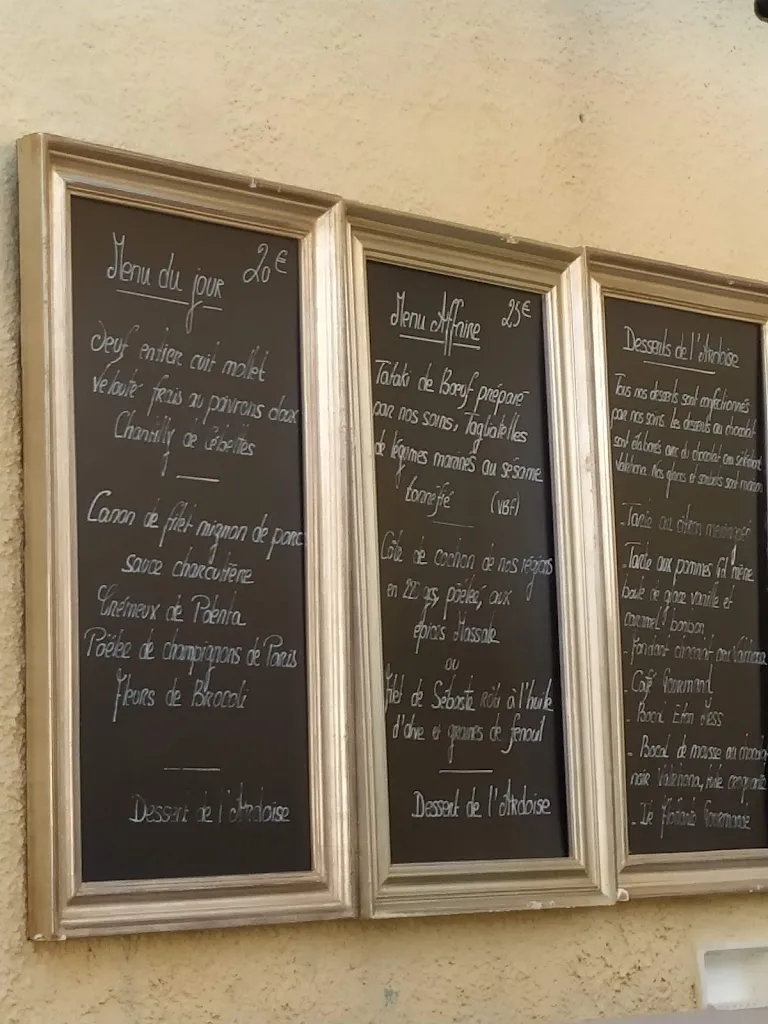 Menu du jour 20€
Oeuf entier cuit mollet
velouté frais au poivrons doux
Chantilly de Cébettes
Canon de filet mignon de porc
sauce charcutière
Crémeux de Polenta
Poëlée de champignons de Paris
Fleurs de Brocoli
Dessert de l'Ardoise
Menu Affaire 25€
Tataki de Bœuf préparé
par nos soins, Tagliatelles
de légumes marinés au sésame
torréfié (VBF)
Côte de cochon de nos régions
en 220 grs, poêlée, aux
épices Massale
ou
Filet de Sébaste rôti à l'huile
d'olive et graines de fenouil
Dessert de l'Ardoise
Desserts de l'Ardoise
Tous nos desserts sont confectionnés
par nos soins. les desserts au chocolat
sont élaborés avec du chocolat
Valrhona. Nos glaces et sorbets sont maison
- Tarte au citron meringuée
- Tarte aux pommes mère
boule de glace vanille et
caramel bonbon
- fondant chocolat Valrhona
- Café Gourmand
- Bocal Eton Mess
- Bocal de mousse au chocolat
noir Valrhona, tuile croquante
- Gourmande